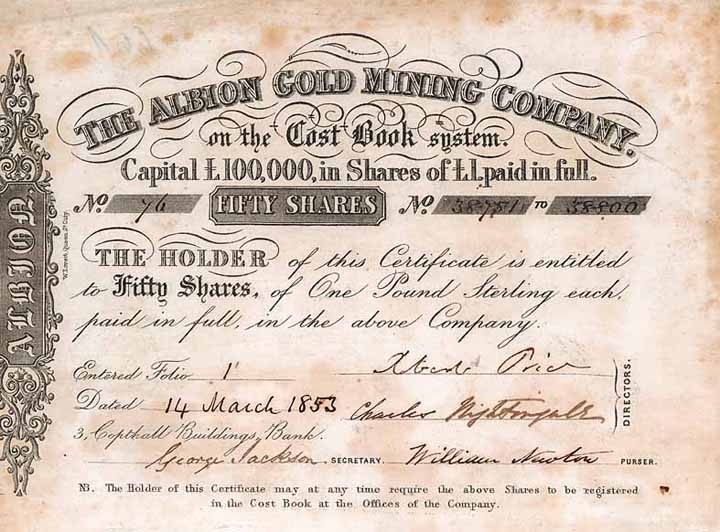 THE ALBION GOLD MINING COMPANY.
on the Cost Book system.
Capital £100,000, in Shares of £1. paid in full.
No. 76 FIFTY SHARES No. 38751 TO 38800
THE HOLDER of this Certificate is entitled
to Fifty Shares, of One Pound Sterling each,
paid in full, in the above Company.
Entered Folio 1
DIRECTORS.
Dated 14 March 1853 Charles Nightingale
3, Copthall Buildings, Bank.
George Jackson SECRETARY. William Newton PURSER.
NB. The Holder of this Certificate may at any time require the above Shares to be registered
in the Cost Book at the Offices of the Company.
ALBION